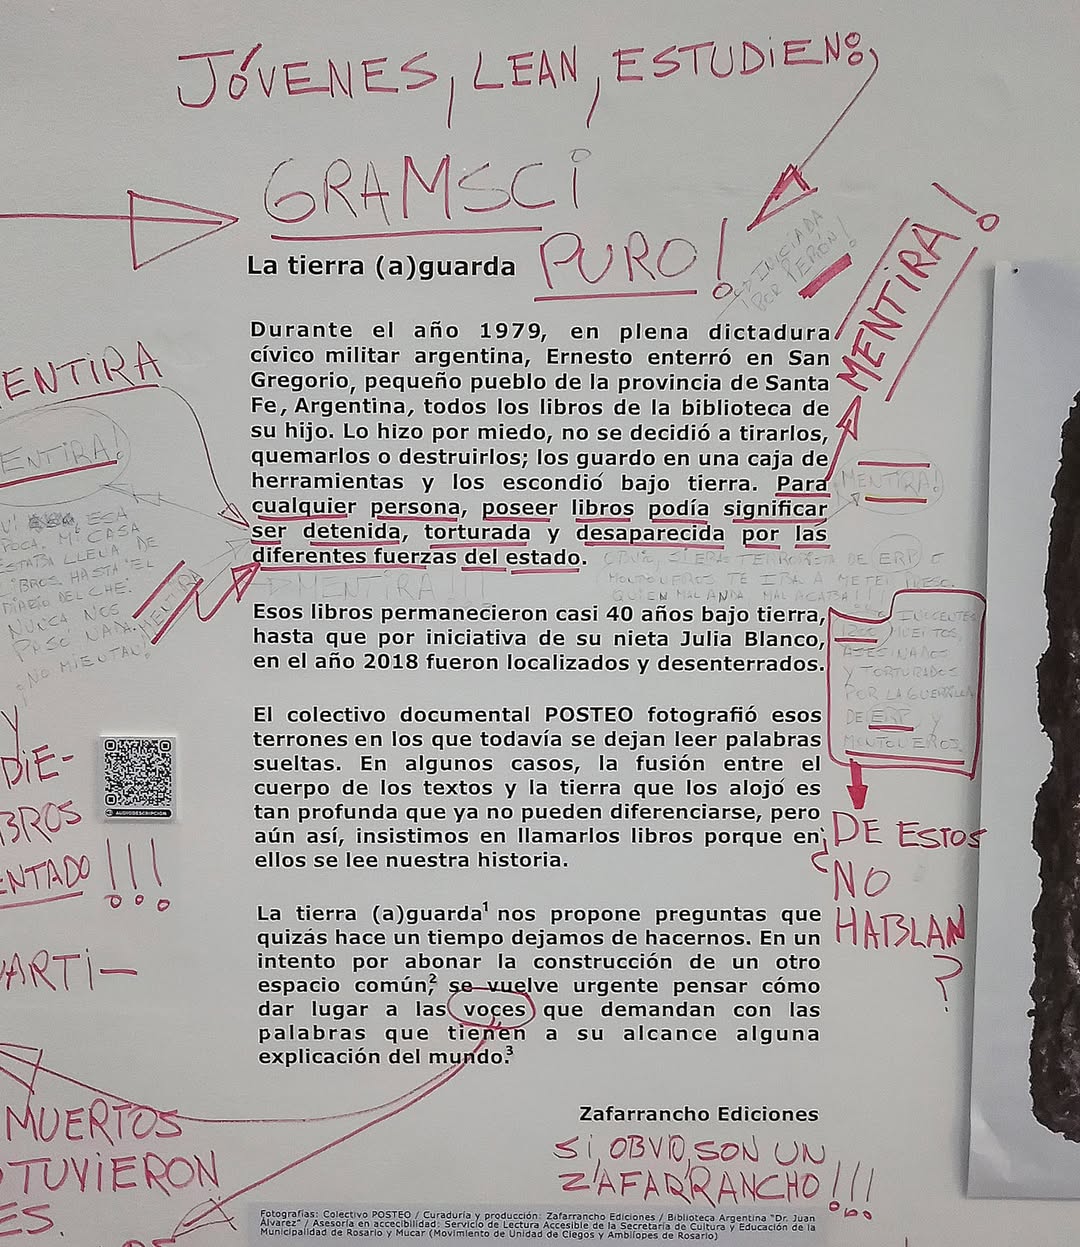 JÓVENES, LEAN, ESTUDIEN;
GRAMSCI
PURO!
La tierra (a)guarda
INICIADA
POR PERÓN!
MENTIRA!
Durante el año 1979, en plena dictadura
cívico militar argentina, Ernesto enterró en San
Gregorio, pequeño pueblo de la provincia de Santa
Fe, Argentina, todos los libros de la biblioteca de
su hijo. Lo hizo por miedo, no se decidió a tirarlos,
quemarlos o destruirlos; los guardo en una caja de
herramientas y los escondió bajo tierra. Para
cualquier persona, poseer libros podía significar
ser detenida, torturada y desaparecida por las
diferentes fuerzas del estado.
ENTIRA
ENTIRA!
ESA
POCA. MI CASA
ESTABA LLENA DE
IBROS HASTA EL
DIARIO DEL CHE.
NUNCA NOS
PASÓ NADA.
¡NO MIENTAN!
MENTIRA
MENTIRA!
MENTIRA!!!
OBVIO, SI ERAS TERRORISTA DE ERP O
MONTONEROS TE IBA A METER PRESO.
QUIEN MAL ANDA MAL ACABA!!!
Esos libros permanecieron casi 40 años bajo tierra,
hasta que por iniciativa de su nieta Julia Blanco,
en el año 2018 fueron localizados y desenterrados.
INOCENTES
MUERTOS,
ASESINADOS
Y TORTURADOS
POR LA GUERRILLA
DE ERP Y
MONTONEROS.
¿DE ESTOS
NO
HABLAN
?
El colectivo documental POSTEO fotografió esos
terrones en los que todavía se dejan leer palabras
sueltas. En algunos casos, la fusión entre el
cuerpo de los textos y la tierra que los alojó es
tan profunda que ya no pueden diferenciarse, pero
aún así, insistimos en llamarlos libros porque en
ellos se lee nuestra historia.
Y
DIE-
BROS
ENTADO !!!
PARTI-
AUDIODESCRIPCIÓN
La tierra (a)guarda¹ nos propone preguntas que
quizás hace un tiempo dejamos de hacernos. En un
intento por abonar la construcción de un otro
espacio común,² se vuelve urgente pensar cómo
dar lugar a las voces que demandan con las
palabras que tienen a su alcance alguna
explicación del mundo.³
MUERTOS
TUVIERON
ES.
Zafarrancho Ediciones
SI, OBVIO, SON UN
ZAFARRANCHO!!!
Fotografías: Colectivo POSTEO / Curaduría y producción: Zafarrancho Ediciones / Biblioteca Argentina "Dr. Juan
Álvarez" / Asesoría en accecibilidad: Servicio de Lectura Accesible de la Secretaría de Cultura y Educación de la
Municipalidad de Rosario y Mucar (Movimiento de Unidad de Ciegos y Amblíopes de Rosario)